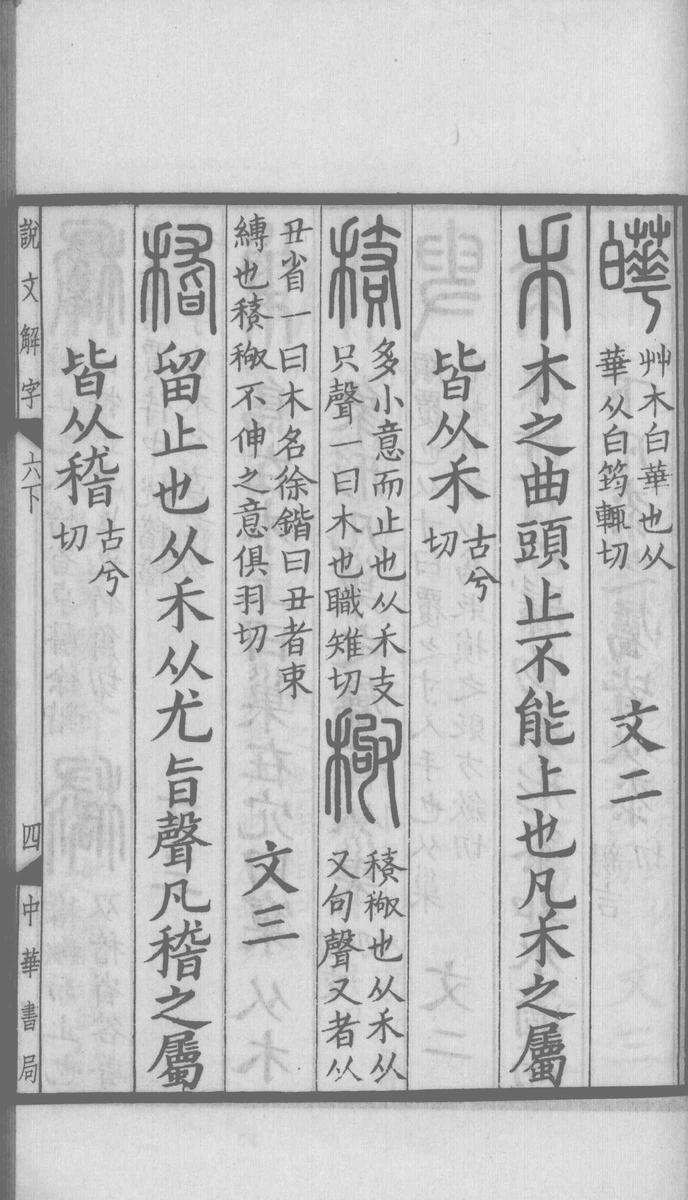 皣 艸木白華也从華从白筠輒切 文二
禾 木之曲頭止不能上也凡禾之屬
皆从禾 古兮切
𥠻 多小意而止也从禾支只聲一曰木也職雉切 𥡴 𥠻𥡴也从禾从又句聲又者从
丑省一曰木名徐鍇曰丑者束縛也𥠻𥡴不伸之意俱羽切 文三
稽 留止也从禾从尤旨聲凡稽之屬
皆从稽 古兮切
說文解字 六下 四 中華書局